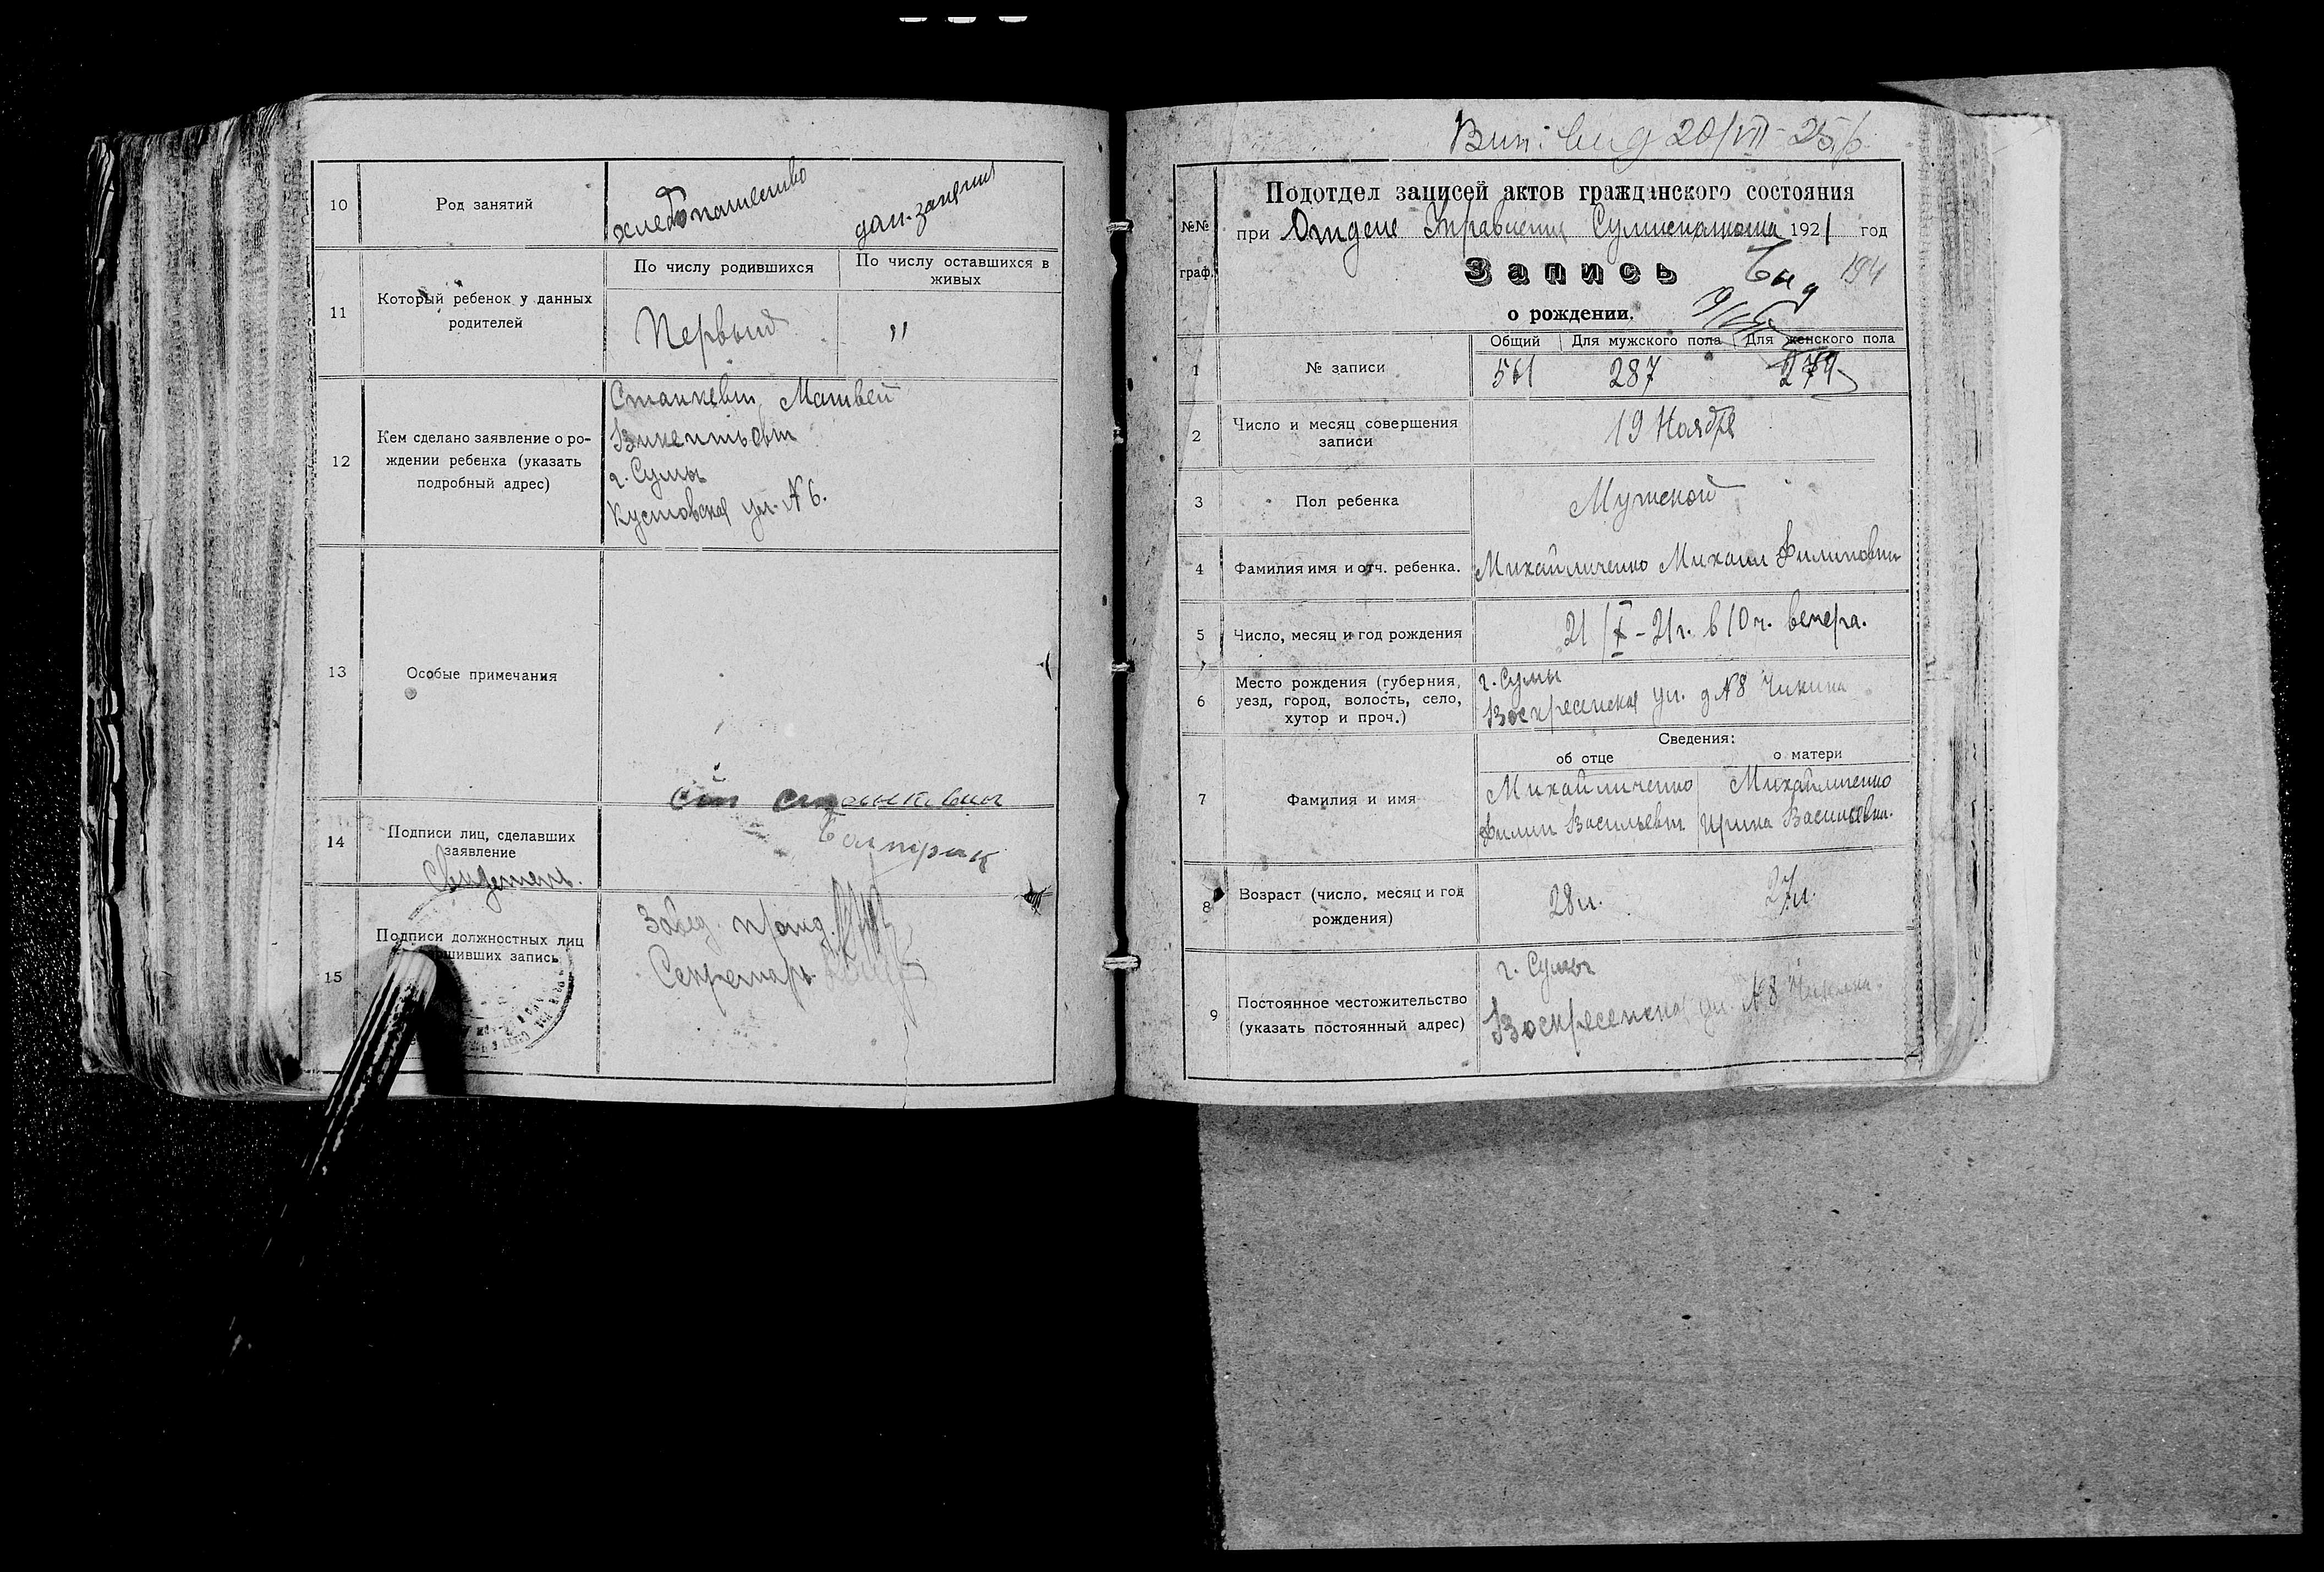 10
Род занятий
хлебопашество
дом. занятия
11
Который ребенок у данных
родителей
По числу родившихся
По числу оставшихся в
живых
Первый
"
12
Кем сделано заявление о ро-
ждении ребенка (указать
подробный адрес)
Станкевич Матвей
Викентьевич
г. Сумы
Кустовская ул. № 6.
13
Особые примечания
14
Подписи лиц, сделавших
заявление
Свидетель.
15
Подписи должностных лиц
Завед.
Секретарь
20/VII-25
№№
граф.
Подотдел записей актов гражданского состояния
при Отделе Управления 1921 год
Запись
о рождении.
194
1
№ записи
Общий
Для мужского пола
Для женского пола
561
287
274
2
Число и месяц совершения
записи
19 Ноября
3
Пол ребенка
Мужской
4
Фамилия имя и отч. ребенка.
Михайличенко Михаил Филипович
5
Число, месяц и год рождения
21/X-21г. в 10 ч. вечера.
6
Место рождения (губерния,
уезд, город, волость, село,
хутор и проч.)
г. Сумы
Воскресенская ул. д № 8 Чикина
7
Фамилия и имя
Сведения:
об отце
о матери
Михайличенко
Филип Васильевич
Михайличенко
Ирина Васильевна.
8
Возраст (число, месяц и год
рождения)
28 л.
27 л.
9
Постоянное местожительство
(указать постоянный адрес)
г. Сумы
Воскресенская ул. № 8 Чикина